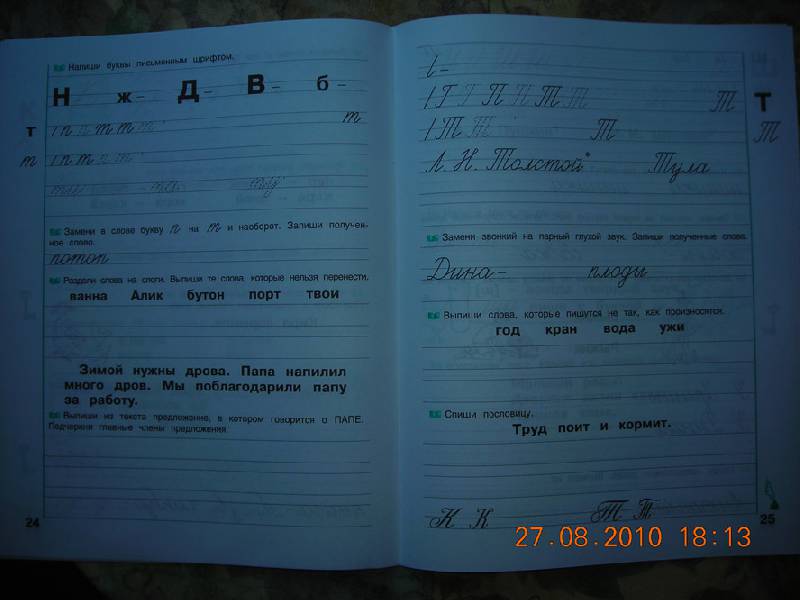 Напиши буквы письменным шрифтом.
Н ж– Д– В– б–
т
т I п п т т т
т I п т п т
ти та ту
Замени в слове букву п на т и наоборот. Запиши получен-
ное слово.
потоп
Раздели слова на слоги. Выпиши те слова, которые нельзя перенести.
ванна Алик бутон порт твои
Зимой нужны дрова. Папа напилил
много дров. Мы поблагодарили папу
за работу.
Выпиши из текста предложение, в котором говорится о ПАПЕ.
Подчеркни главные члены предложения.
24
I Г Г П П Т Т Т Т
I Т Т Т Т
Л. Н. Толстой Тула
Замени звонкий на парный глухой звук. Запиши полученные слова.
Дина– плоды
Выпиши слова, которые пишутся не так, как произносятся.
год кран вода ужи
Спиши пословицу.
Труд поит и кормит.
К К Т Т
25
27.08.2010 18:13